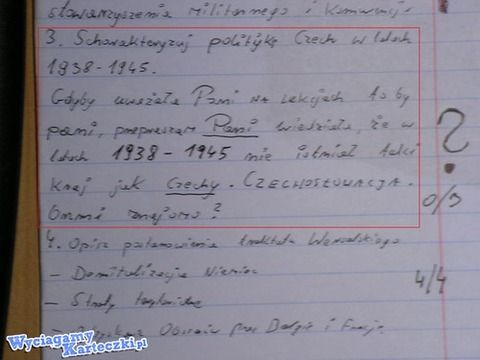 stowarzyszenia militarnego i
3. Scharakteryzuj politykę Czech w latach
1938-1945.
Gdyby uważała Pani na lekcjach to by
pani, przepraszam Pani wiedziała, że w
latach 1938-1945 nie istniał taki
kraj jak Czechy. CZECHOSŁOWACJA.
Ommi znajomo?
?
0/3
4. Opisz postanowienia traktatu Wersalskiego
- Demilitalizacja Niemiec
- Straty
4/4
przez Belgię i Francję
Wyciagamy
Karteczki.pl